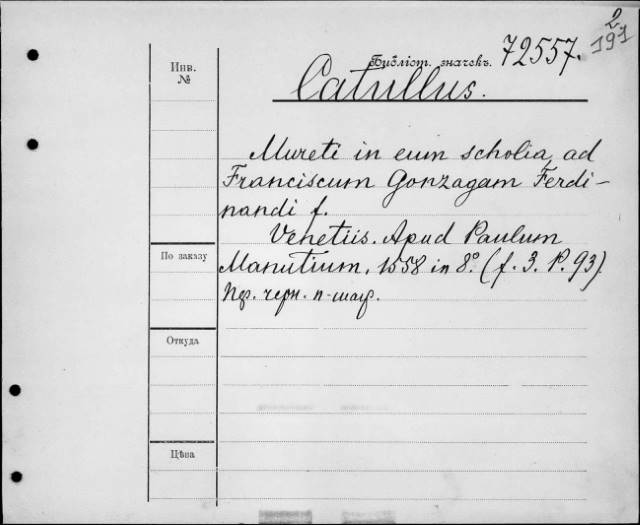 2
191
Инв.
№
Библіот. значекъ. 72557.
Catullus.
Mureti in eum scholia, ad
Franciscum Gonzagam Ferdi-
nandi f.
Venetiis. Apud Paulum
По заказу
Manutium, 1558 in 8º. (f. 3. P. 93).
черн.
Откуда
Цѣна